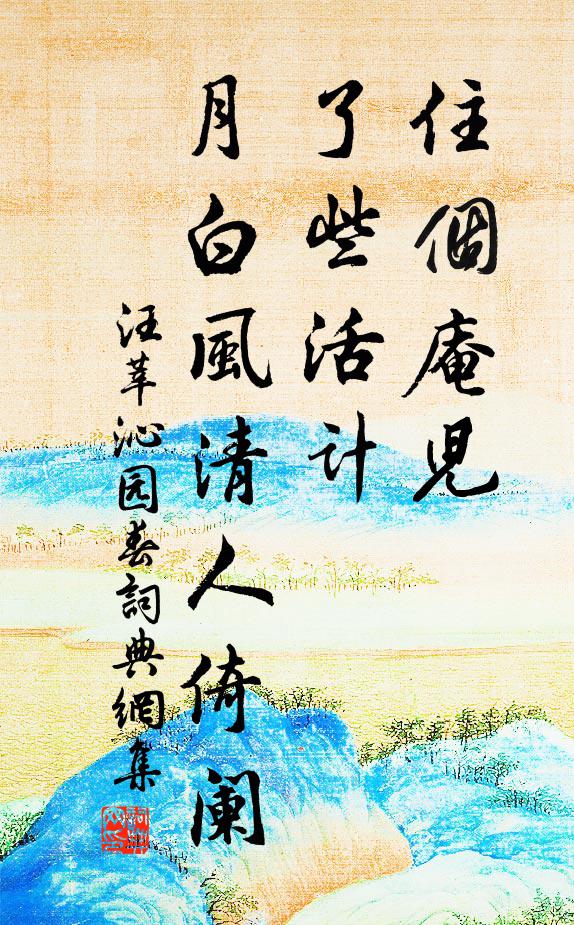 住個庵兒
了些活計
月白風清人倚闌
汪莘沁园春詞典網集